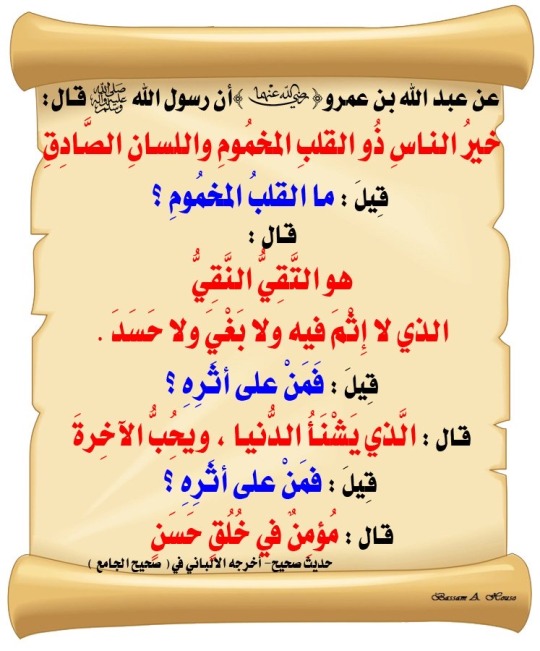 عن عبد الله بن عمرو ﴿رضي الله عنهما﴾ أن رسول الله ﷺ قال :
خيرُ الناسِ ذُو القلبِ المخمُومِ واللسانِ الصَّادِقِ
قِيلَ : ما القلبُ المخمُومِ ؟
قال :
هو التَّقِيُّ النَّقِيُّ
الذي لا إِثْمَ فيه ولا بَغْيَ ولا حَسَدَ .
قِيلَ : فَمَنْ على أثَرِهِ ؟
قال : الَّذي يَشْنَأُ الدُّنيا ، ويحُبُّ الآخِرةَ
قِيلَ : فمَنْ على أثَرِهِ ؟
قال : مُؤمِنٌ في خُلُقٍ حَسَنٍ
حديث صحيح - أخرجه الالباني في ( صحيح الجامع )
Bassam A. Houso